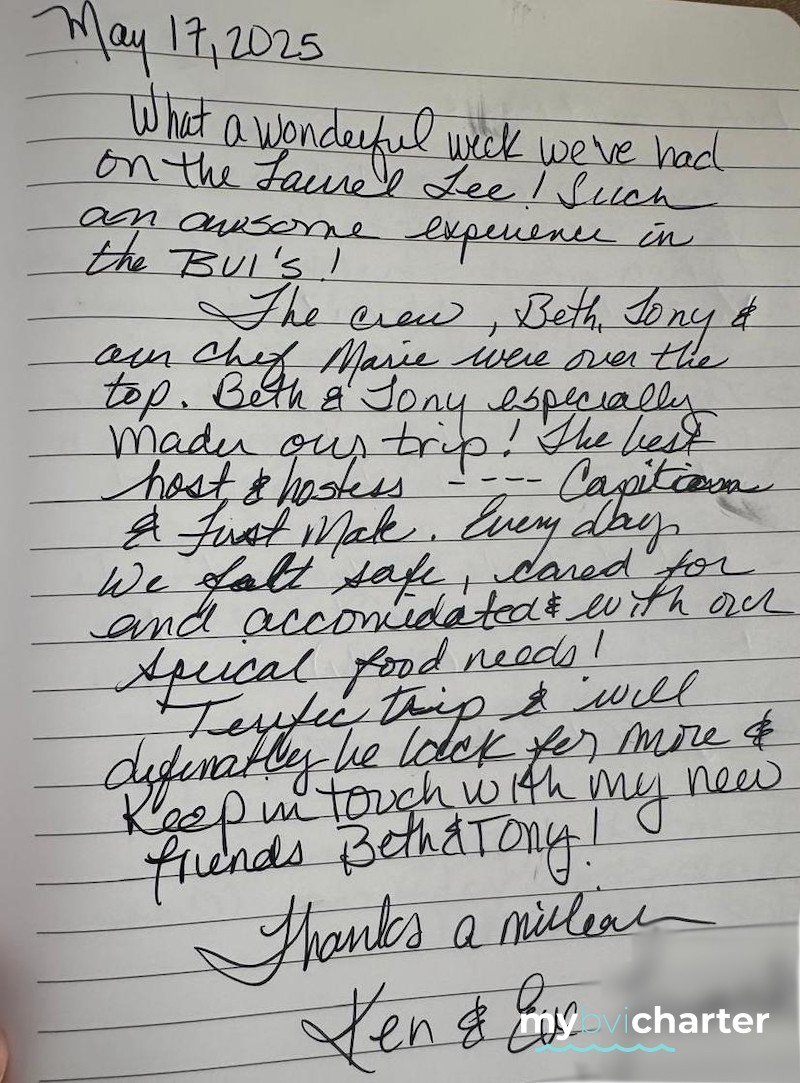 May 17, 2025
What a wonderful week we've had
on the Laurel Lee! Such
an awesome experience in
the BVI's!
The crew, Beth, Tony &
our chef Marie were over the
top. Beth & Tony especially
made our trip! The best
host & hostess ---- Capitian
& First Mate. Every day
we falt safe, cared for
and accomidated & with our
speical food needs!
Terrific trip & will
definatley be back for more &
Keep in touch with my new
friends Beth & Tony!
Thanks a million
Ken &
mybvicharter